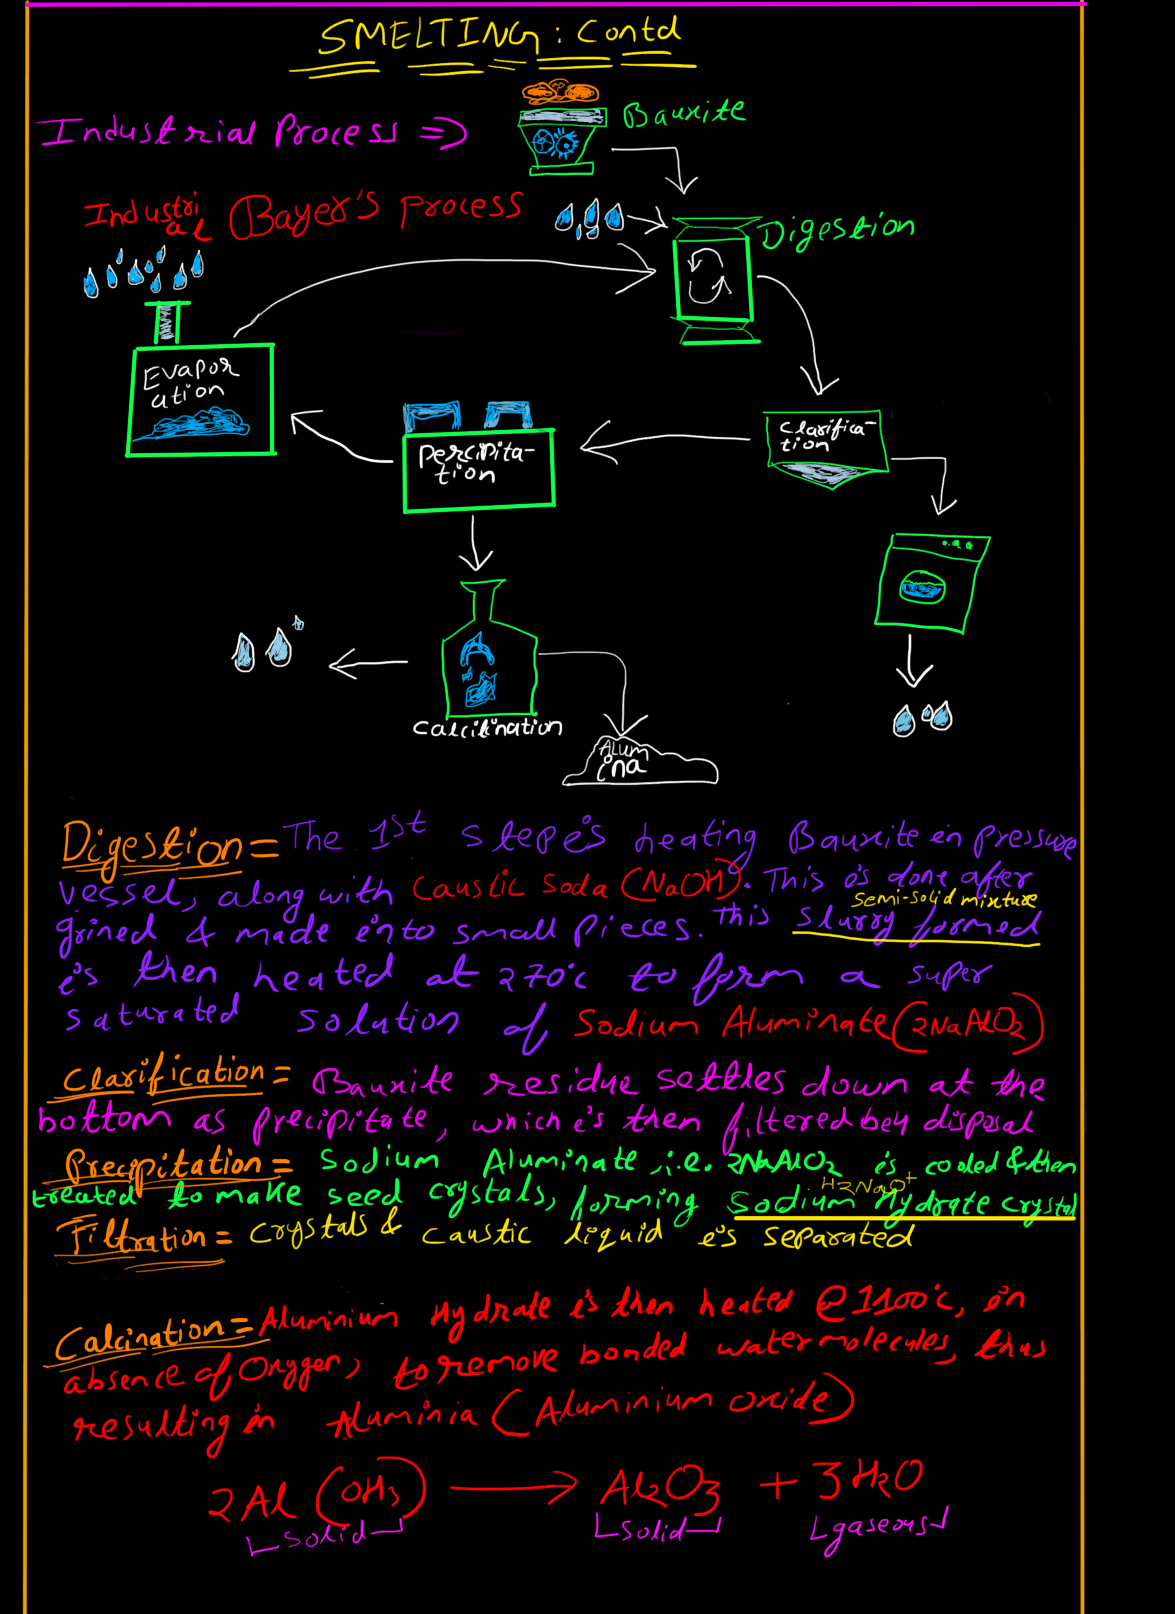 SMELTING : Contd
Industrial Process =>
Bauxite
Industri
al
Bayer's process
Digestion
Evapor
ation
percipita-
tion
clarifica-
tion
calcilination
Alum
ina
Digestion = The 1st step is heating Bauxite in pressure
vessel, along with caustic soda (NaOH). This is done after
semi-solid mixture
grined & made into small pieces. This slurry formed
is then heated at 270°c to form a super
saturated solution of Sodium Aluminate (2NaAlO2)
Clarification = Bauxite residue settles down at the
bottom as precipitate, which is then filtered bey disposal
Precipitation = Sodium Aluminate, i.e. 2NaAlO2 is cooled & then
H2NaO+
treated to make seed crystals, forming Sodium Hydrate crystal
Filtration = crystals & caustic liquid is separated
Calcination = Aluminium Hydrate is then heated @ 1100°c, in
absence of Oxygen, to remove bonded water molecules, thus
resulting in Aluminia (Aluminium oxide)
2Al (OH3) → Al2O3 + 3H2O
solid solid gaseous